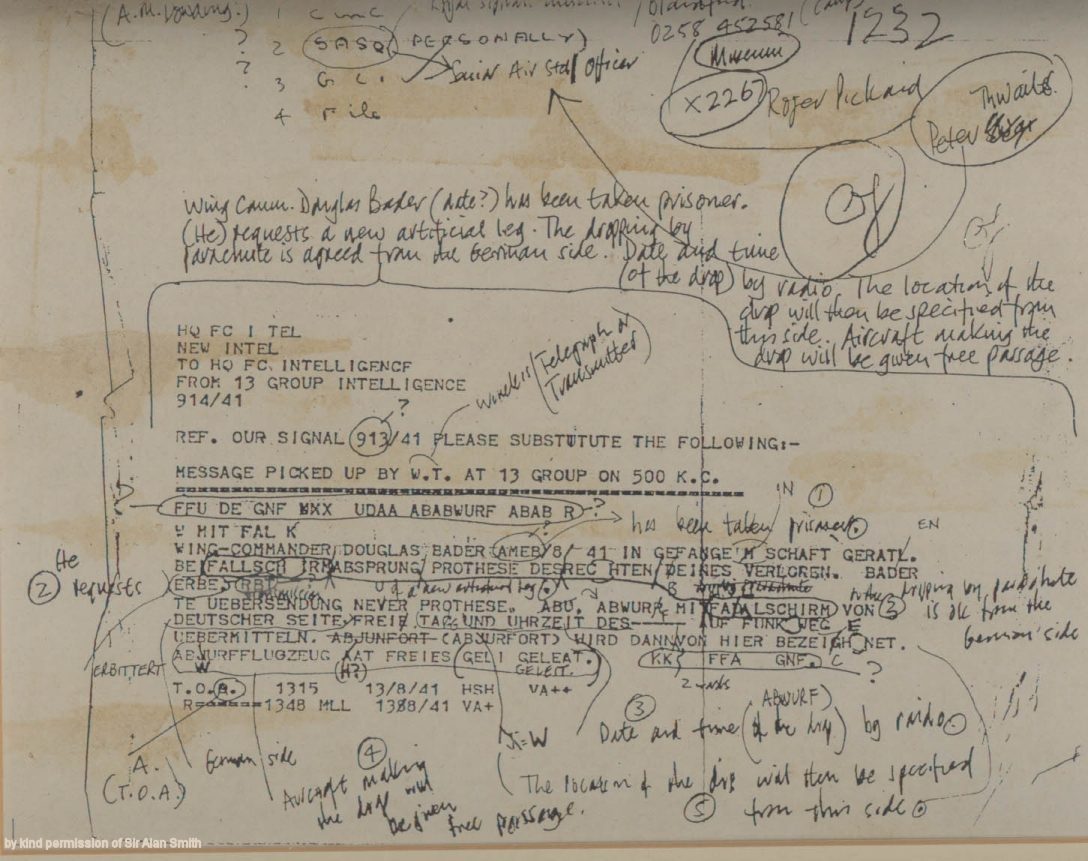 (A.M. Vowding.)
1 C in C
0258 452581
1232
Museum
?
2 SASO (PERSONALLY)
?
3 G.C.
Senior Air Staff Officer
4 File
X2267
Roger Pickard
Thwaites.
Peter
Of
Of
Wing Comm. Douglas Bader (date?) has been taken prisoner.
(He) requests a new artificial leg. The dropping by
parachute is agreed from the German side. Date and time
(of the drop) by radio. The location of the
drop will then be specified from
this side. Aircraft making the
drop will be given free passage.
HQ FC I TEL
NEW INTEL
TO HQ FC. INTELLIGENCF
FROM 13 GROUP INTELLIGENCE
914/41
?
wireless (Telegraph or
Transmitter)
REF. OUR SIGNAL 913/41 PLEASE SUBSTUTUTE THE FOLLOWING:-
MESSAGE PICKED UP BY W.T. AT 13 GROUP ON 500 K.C.
IN
1
FFU DE GNF WXX UDAA ABABWURF ABAB R
?
has been taken prisoner.
EN
W MIT FAL K
?
WING-COMMANDER DOUGLAS BADER (AMEB) 8/ 41 IN GEFANGE'M SCHAFT GERATL.
BEI FALLSCH IRMABSPRUNG PROTHESE DESREC HTEN DEINES VERLOREN. BADER
He
2 requests
ERBE
a new artificial leg.
dropping by parachute
is ok from the
German side
TE UEBERSENDUNG NEVER PROTHESE. ABU. ABWURF MIT FADALSCHIRM VON 3
DEUTSCHER SEITE FREIE TAG UND UHRZEIT DES---- AUF FUNK WEG E
UEBERMITTELN. ABJUNFORT (ABSURFORT) WIRD DANN VON HIER BEZEICH NET.
ERBITTERT
W
ABJURFFLUGZEUG AAT FREIES GELI GELEAT.
GELEIT.
KK FFA GNF. C
?
(H?)
T.O.A. 1315 13/8/41 HSH VA++
R------1348 MLL 1388/41 VA+
ABWURF)
3 Date and time (of the drop) by radio.
A.
(T.O.A.)
German side
J=W
4
Aircraft making
the drop will
be given
free passage.
(The location of the drop will then be specified
5 from this side.
by kind permission of Sir Alan Smith